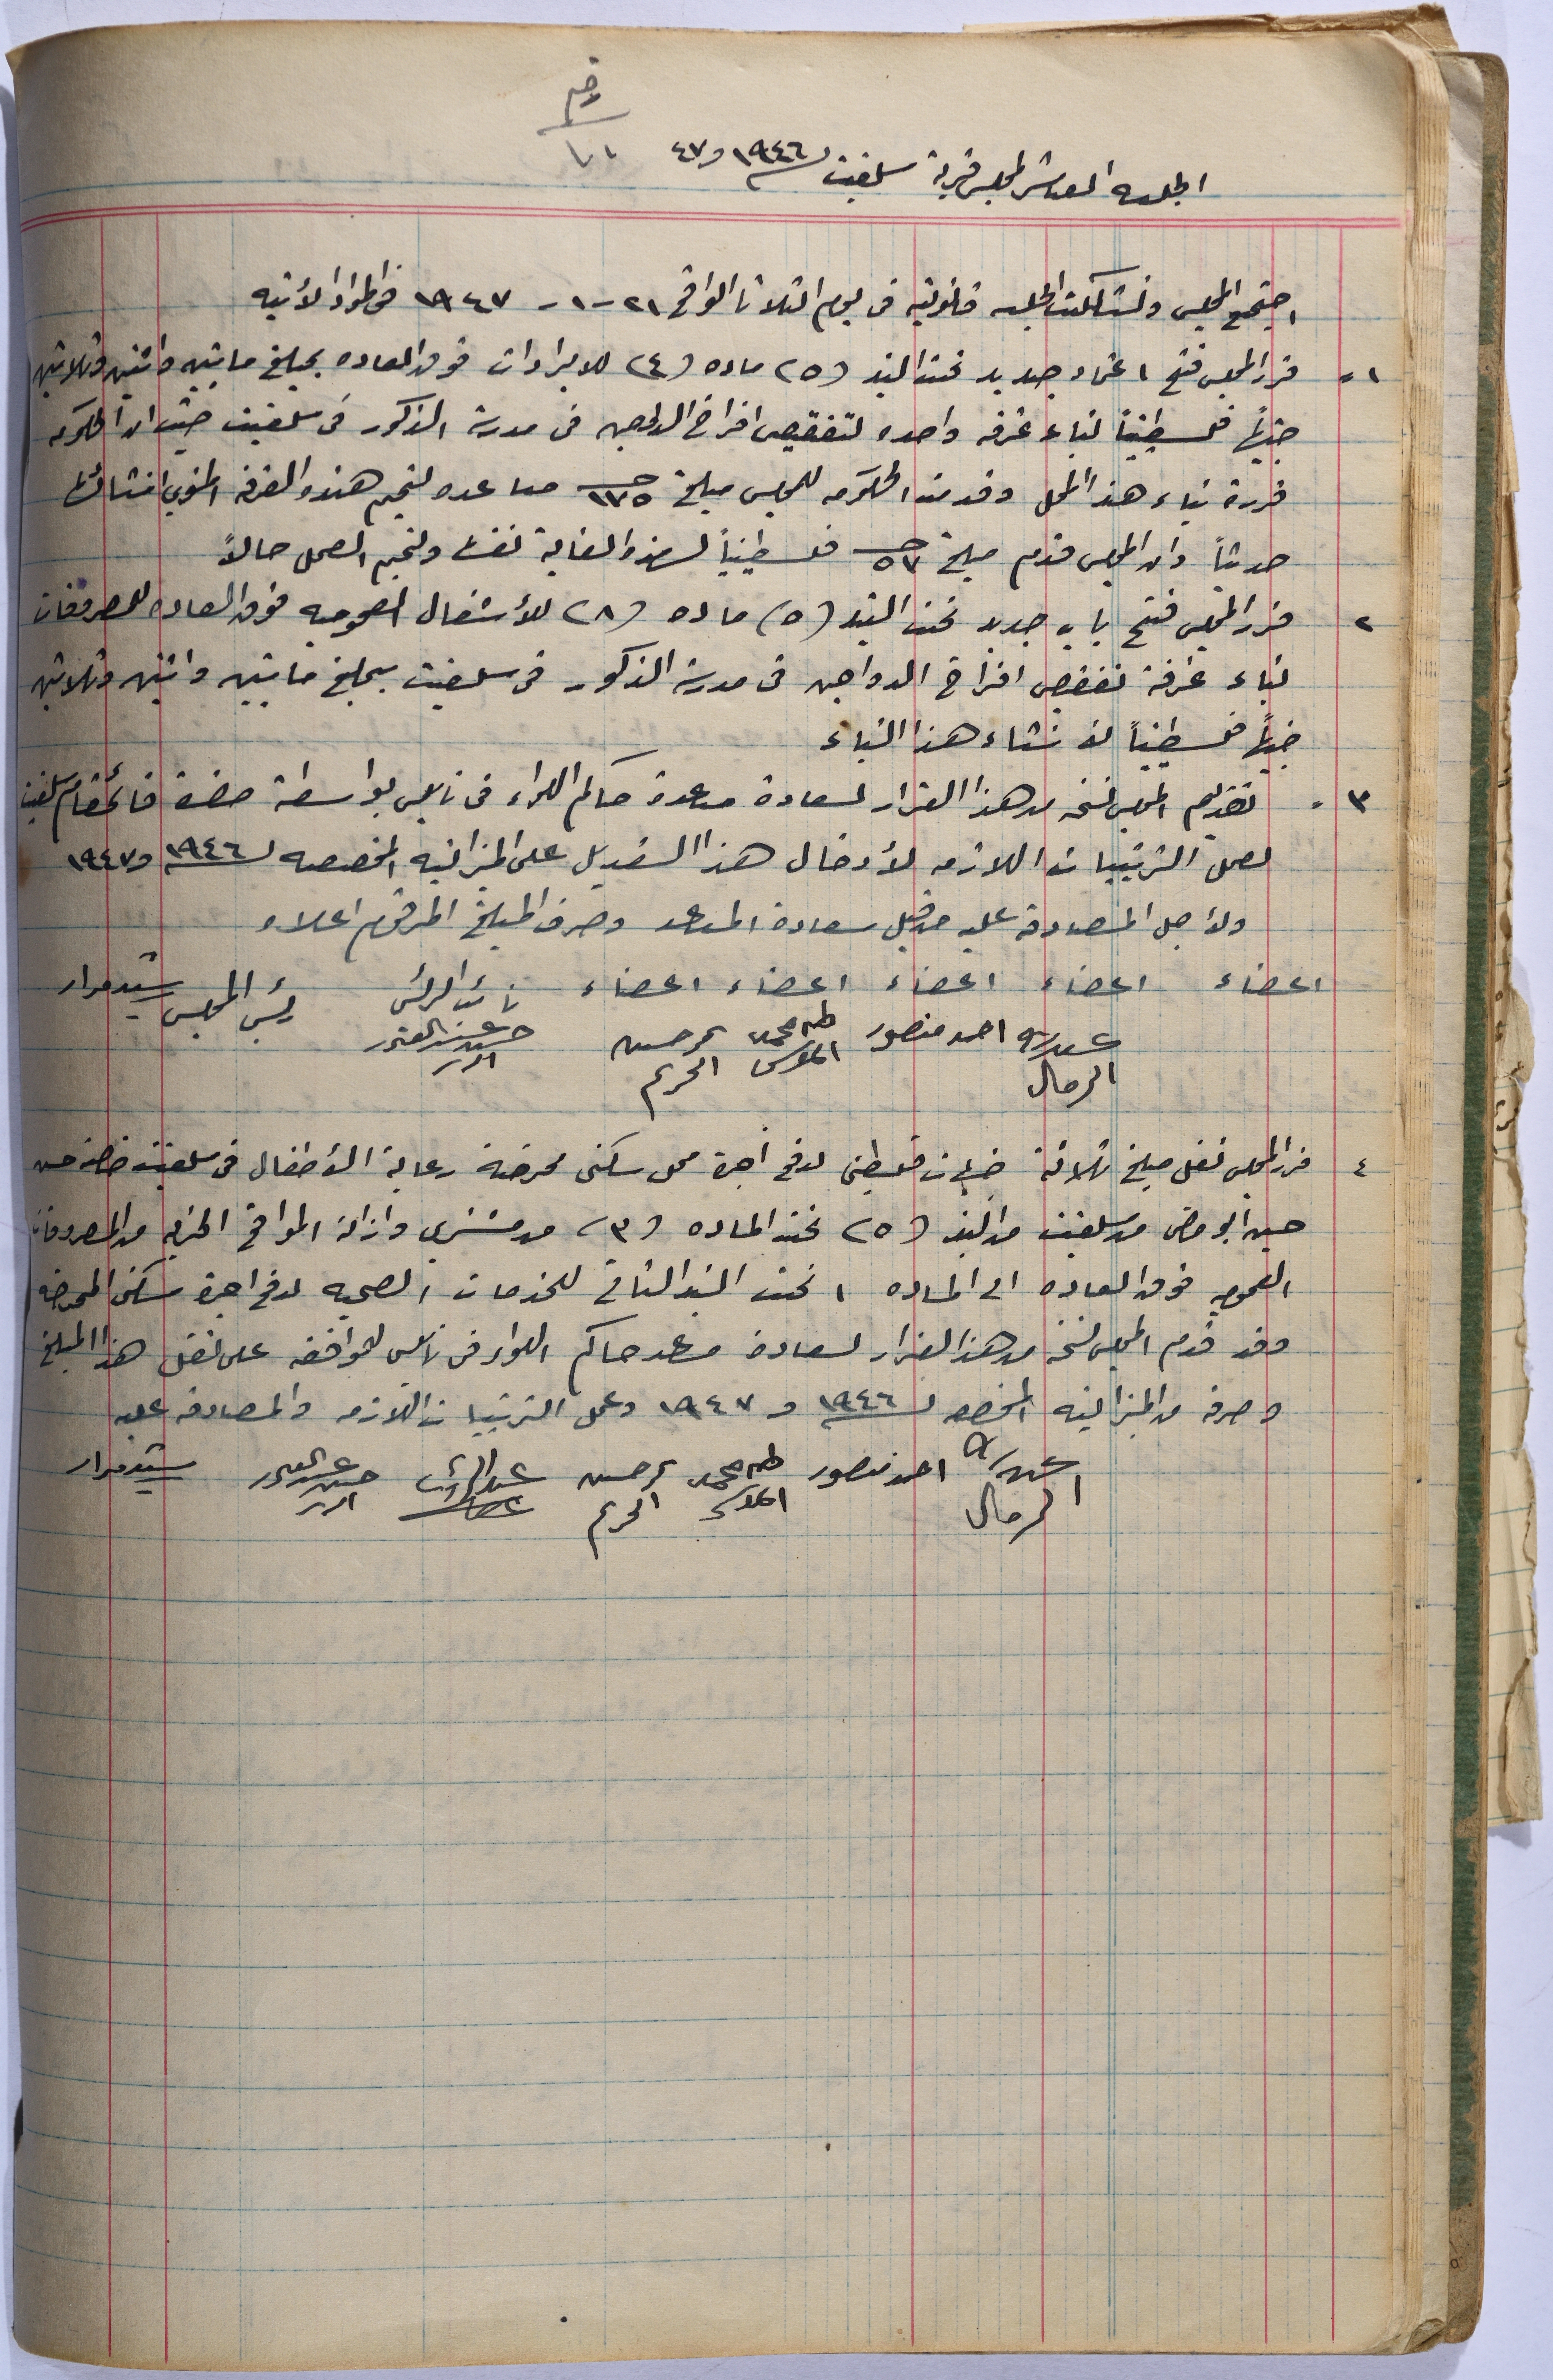 رقم
١٨١
الجلسه العاشر لمجلس قرية سلفيت لسنة ١٩٤٦ و ٤٧
اجتمع المجلس وتشكلت الجلسه قانونية في يوم الثلاثا الواقع ٢١-١-١٩٤٧ في المواد الأتيه
١- قرر المجلس فتح اعتماد جديد تحت البند (٥) ماده (٤) للايرادات فوق العاده بمبلغ مايتين واثنين وثلاثين
جنيهاً فلسطينياً لبناء غرفه واحده لتفقيص افراخ الدواجن في مدرسة الذكور في سلفيت حيث ان الحكومه
قررة بناء هذا المحل وقدمت الحكومه للمجلس مبلغ ١٧٥ جـ مساعده لتتميم هذه الغرفه المنوي انشائها
حديثاً وان المجلس قدم مبلغ ٥٧ جـ فلسطينياً لهذه الغاية نفسها ولتتميم العمل حالاً
٢ قرر المجلس فتح باب جديد تحت البند (٥) ماده (٨) للأشغال العموميه فوق العاده للمصروفات
لبناء غرفة تفقيص افراخ الدواجن في مدرسة الذكور في سلفيت بمبلغ مايتين واثنين وثلاثين
جنيهاً فلسطينياً لانشاء هذا البناء
٣- تقديم المجلس نسخه من هذا القرار لسعادة مساعدة حاكم اللواء في نابلس بواسطة حضرة قائمقام سلفيت
لعمل الترتيبات اللازمه لأدخال هذا التعديل على الميزانيه المخصصه لسنة ١٩٤٦ و ١٩٤٧
ولاجل المصادقه عليه من قبل سعادة المساعد وصرف المبلغ المرقوم اعلاه
اعضاء اعضاء اعضاء اعضاء اعضاء نائب الرئيس رئيس المجلس
عبدالله الرمال احمد منصور طه محمد حسين الحريم حسين عبدالقادر رشيد مرار
٤ قرر المجلس نقل مبلغ ثلاثة جنيهات فلسطيني لدفع اجرة محل سكنى ممرضة رعاية الأطفال في سلفيت حسن
حسين ابو من سلفيت من البند (٥) تحت الماده (٣) من مشترى وازالة المواقع الخربه من المصروفات
العموميه فوق العاده الى الماده ١ تحت البند الثاني للخدمات الصحيه لدفع اجرة سكنى الممرضه
وقد قدم المجلس نسخه من هذا القرار لسعادة مساعد حاكم اللواء في نابلس للموافقه على نقل هذا المبلغ
وصرفه من الميزانيه المخصصه لسنة ١٩٤٦ و ١٩٤٧ وعمل الترتيبات اللازمه والمصادقه عليه
عبدالله الرمال احمد منصور طه محمد حسين الحريم حسين عبدالقادر رشيد مرار